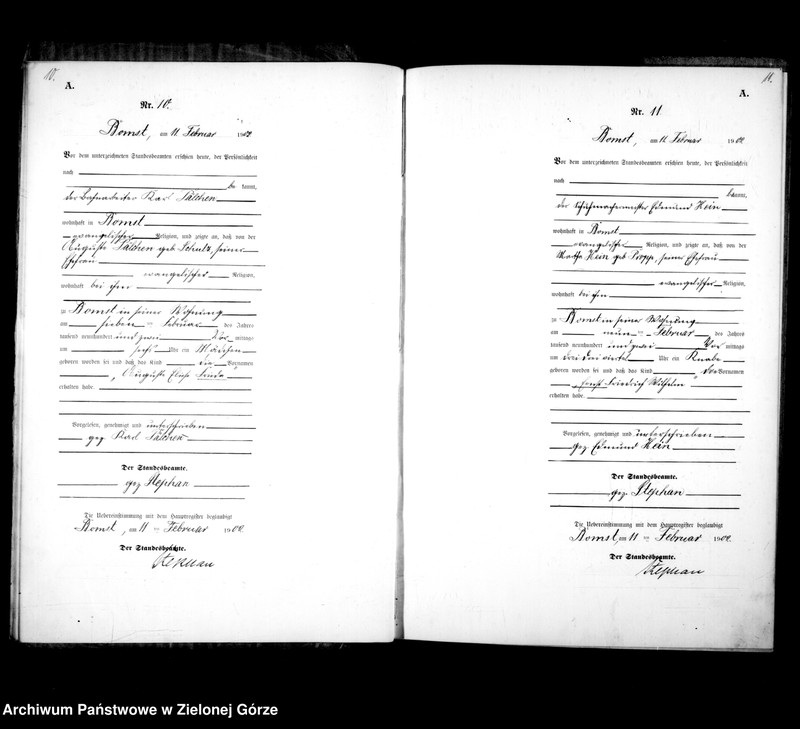 10.
A.
Nr. 10.
Bomst, am 11 Februar 1902
Vor dem unterzeichneten Standesbeamten erschien heute, der Persönlichkeit
nach
be kannt,
der Bahnarbeiter Karl Sälchen
wohnhaft in Bomst
evangelischer Religion, und zeigte an, daß von der
Auguste Sälchen geb Schulz, seiner
Ehefrau
evangelischer Religion,
wohnhaft bei ihm
zu Bomst in seiner Wohnung
am sieben ten Februar des Jahres
tausend neunhundert und zwei Vor mittags
um sechs Uhr ein Mädchen
geboren worden sei und daß das Kind die Vornamen
Auguste Elise Linda
erhalten habe.
Vorgelesen, genehmigt und unterschrieben
gez Karl Sälchen
Der Standesbeamte.
gez Stephan
Die Uebereinstimmung mit dem Hauptregister beglaubigt
Bomst, am 11 ten Februar 1902.
Der Standesbeamte.
Stephan
11.
A.
Nr. 11
Bomst, am 11 Februar 1902
Vor dem unterzeichneten Standesbeamten erschien heute, der Persönlichkeit
nach
bekannt,
der Schuhmachermeister Edmund Hein
wohnhaft in Bomst
evangelischer Religion, und zeigte an, daß von der
Hein geb Propp, seiner Ehefrau
evangelischer Religion,
wohnhaft bei ihm
zu Bomst in seiner Wohnung
am neun ten Februar des Jahres
tausend neunhundert und zwei Vor mittags
um drei drei viertel Uhr ein Knabe
geboren worden sei und daß das Kind die Vornamen
Ernst Friedrich Wilhelm
erhalten habe.
Vorgelesen, genehmigt und unterschrieben
gez Edmund Hein
Der Standesbeamte.
gez. Stephan
Die Uebereinstimmung mit dem Hauptregister beglaubigt
Bomst, am 11 ten Februar 1902.
Der Standesbeamte.
Stephan
Archiwum Państwowe w Zielonej Górze